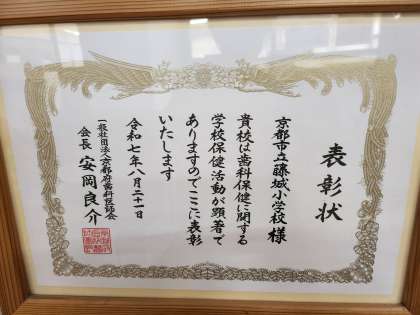 表彰状
京都市立藤城小学校 様
貴校は歯科保健に関する
学校保健活動が顕著で
ありますのでここに表彰
いたします
令和七年八月二十一日
一般社団法人京都府歯科医師会
会長 安岡良介